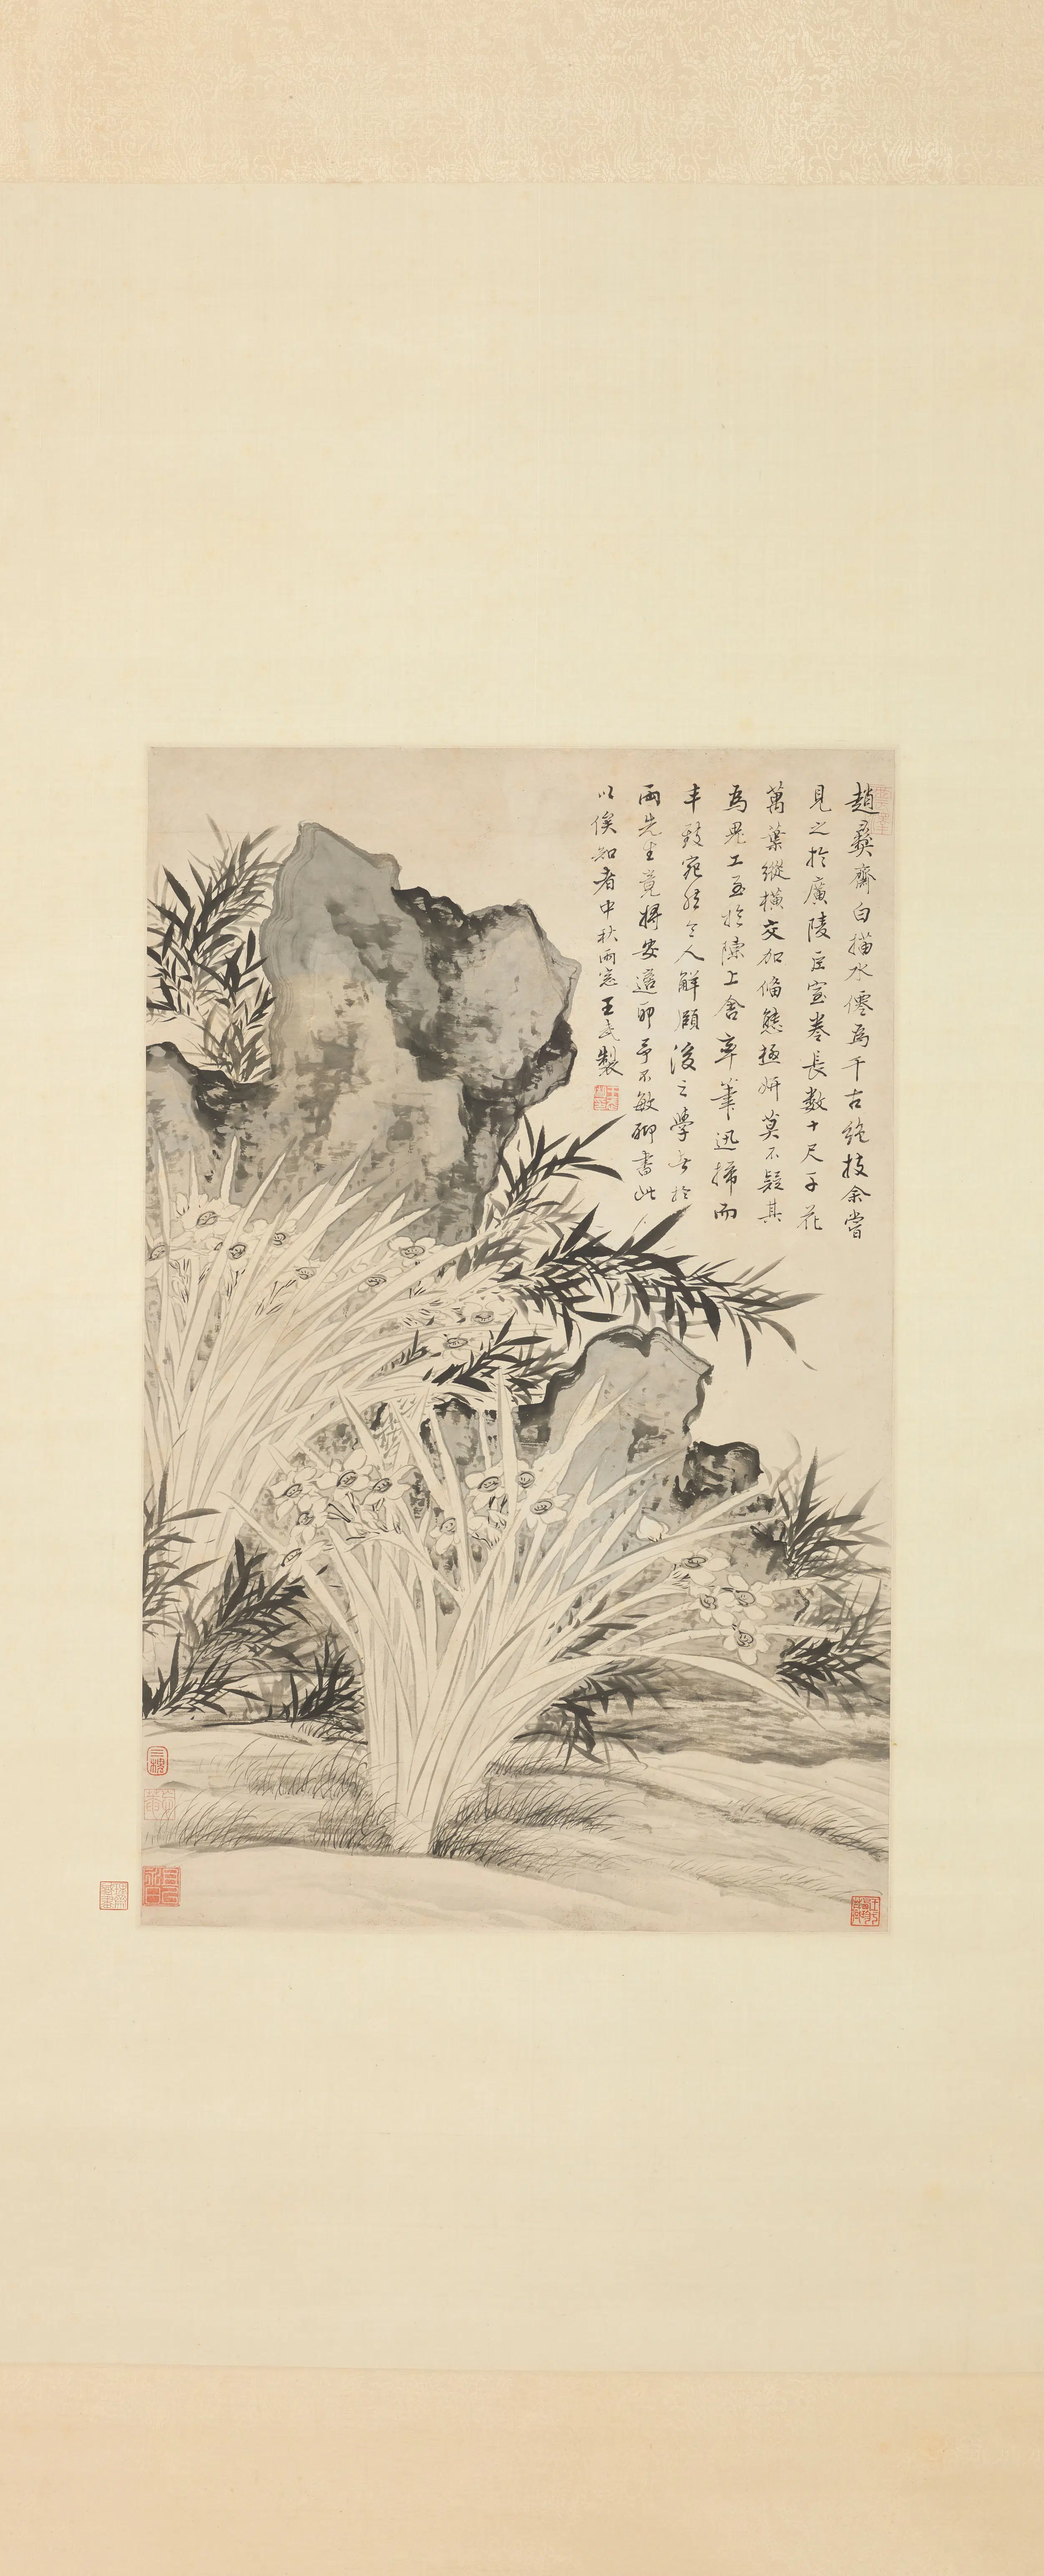 趙彝齋白描水僊為千古絶技余嘗
見之於廣陵巨室卷長數十尺千花
萬葉縱横交加俻態極妍莫不疑其
為鬼工至於陳上舍率筆迅掃而
丰致宛然令人解頤後之學者於
兩先生竟將安適耶予不敏聊書此
以俟知者中秋雨窓王武製